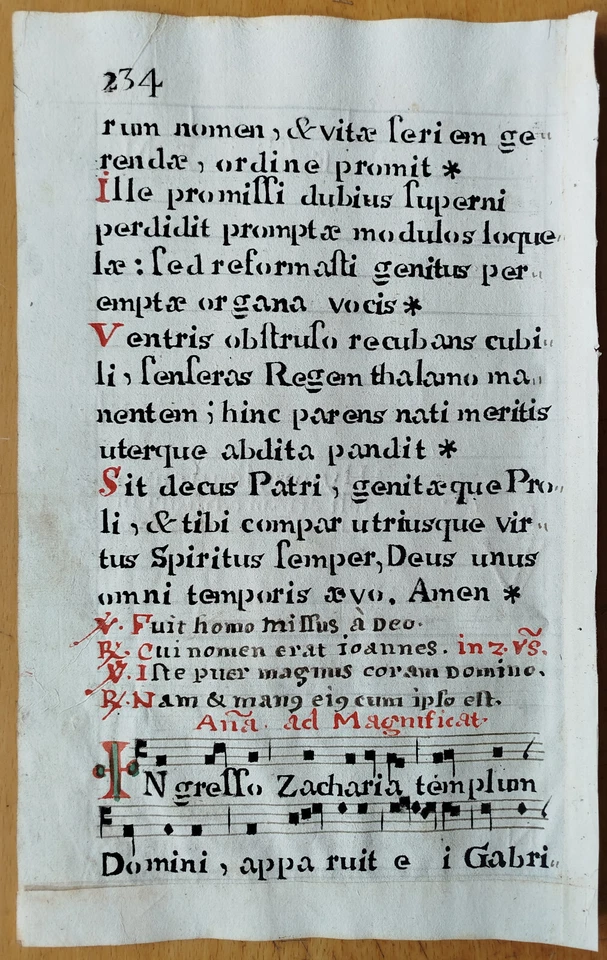 234
rum nomen, & vitæ ſeriem ge„
rendæ, ordine promit *
Ille promiſſi dubius ſuperni
perdidit promptæ modulos loque„
læ: ſed reformaſti genitus per„
emptæ organa vocis *
Ventris obſtruſo recubans cubi„
li, ſenſeras Regem thalamo ma„
nentem; hinc parens nati meritis
uterque abdita pandit *
Sit decus Patri, genitæque Pro„
li, & tibi compar utriusque vir„
tus Spiritus ſemper, Deus unus
omni temporis ævo. Amen *
℣. Fuit homo miſſus à Deo.
℟. Cui nomen erat Ioannes. in 2. Vs̃.
℣. Iſte puer magnus coram Domino.
℟. Nam & manꝰ eiꝰ cum ipſo eſt.
Añã. ad Magnificat.
INgreſſo Zacharia templum
Domini, apparuit ei Gabri„